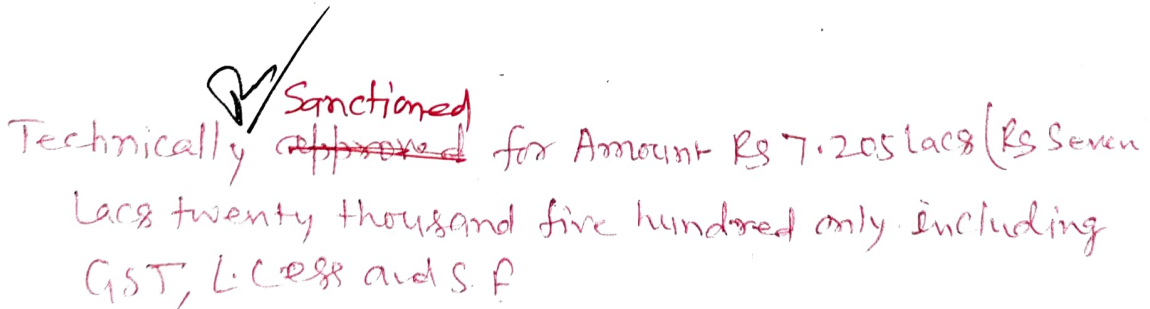 Sanctioned
Technically approved for Amount Rs 7.205 lacs (Rs Seven
Lacs twenty thousand five hundred only including
GST, L. Cess and S. F